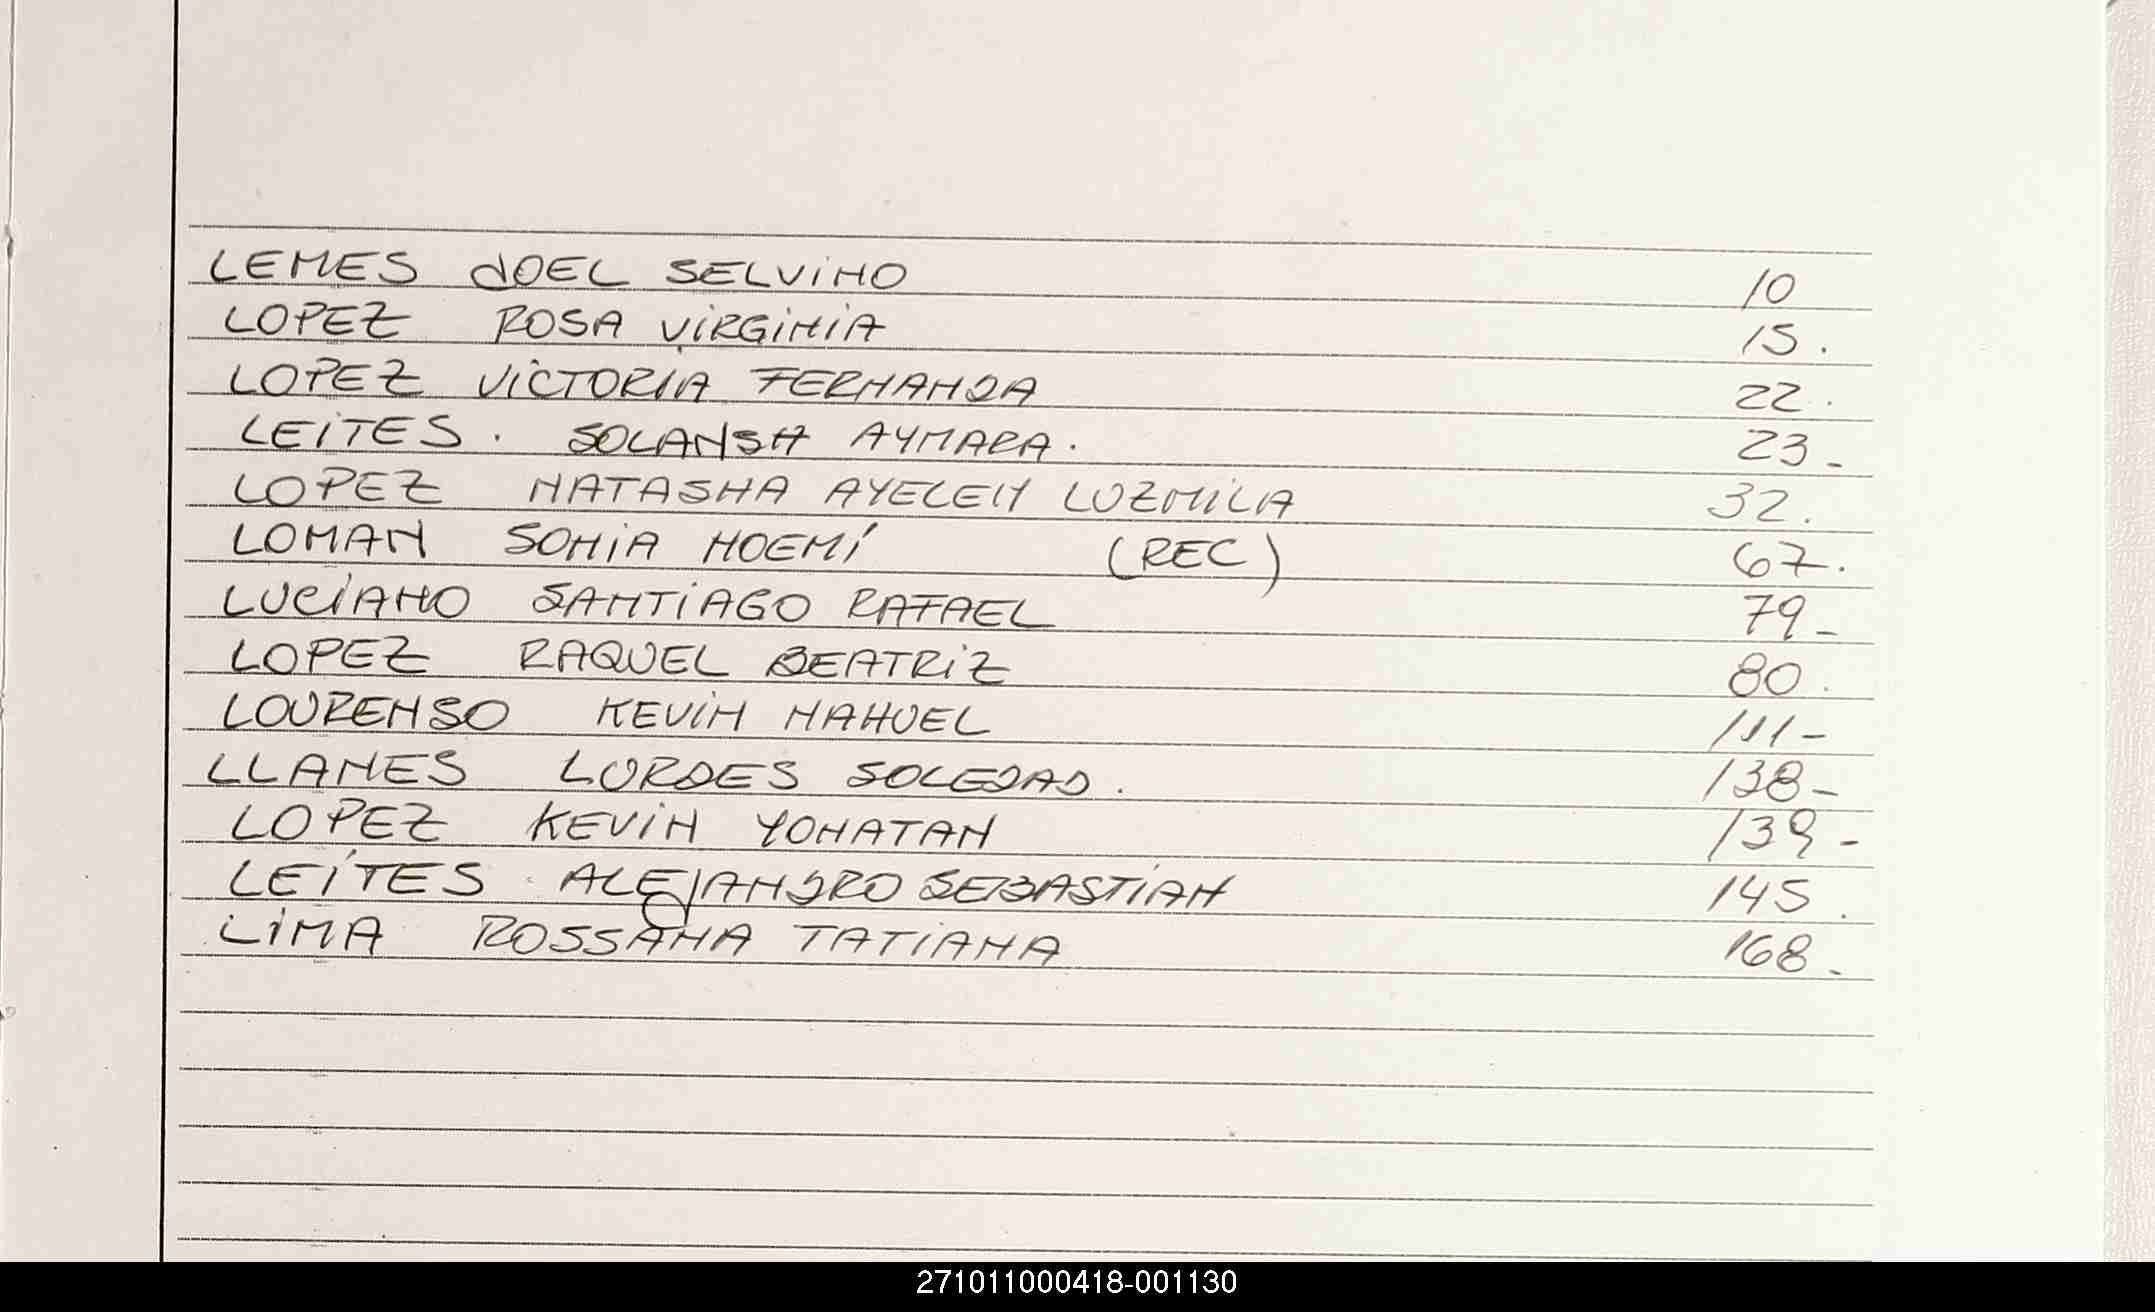 LEMES JOEL SELVINO 10
LOPEZ ROSA VIRGINIA 15.
LOPEZ VICTORIA FERNANDA 22.
LEITES. SOLANSH AYMARA. 23-
LOPEZ NATASHA AYELEN LUZMILA 32.
LOMAN SONIA NOEMÍ (REC) 67.
LUCIANO SANTIAGO RAFAEL 79-
LOPEZ RAQUEL BEATRIZ 80.
LOURENSO KEVIN NAHUEL 111-
LLANES LURDES SOLEDAD. 138-
LOPEZ KEVIN YONATAN 139-
LEITES ALEJANDRO SEBASTIAN 145.
LIMA ROSSANA TATIANA 168-
271011000418-001130